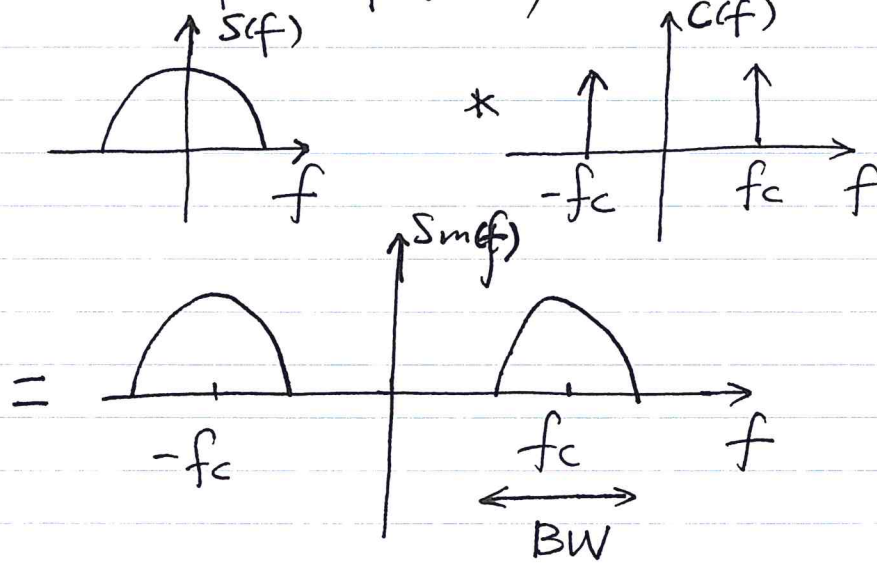 S(f)
C(f)
*
f
-fc
fc
f
Sm(f)
=
-fc
fc
f
BW